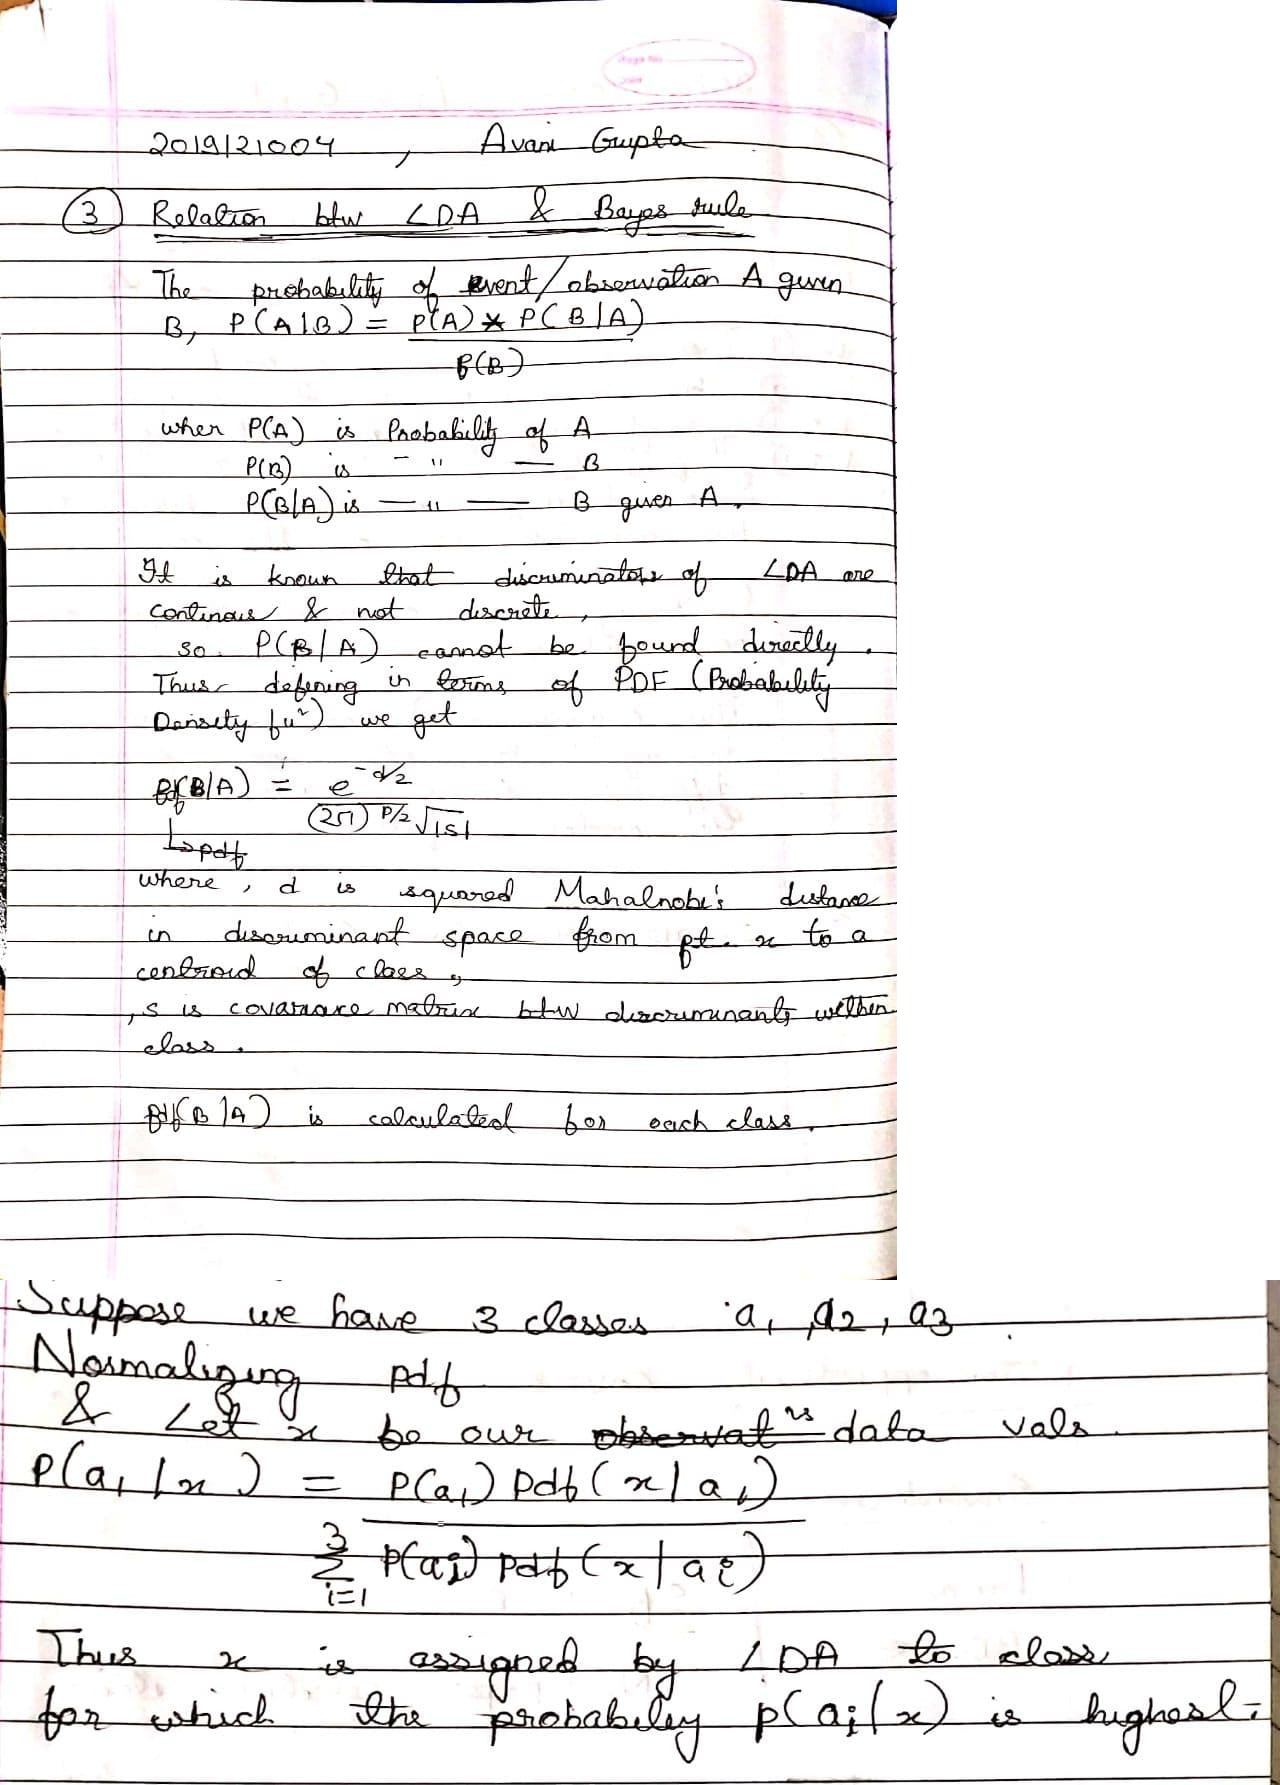 2019121004 , Avani Gupta
3 Relation btw LDA & Bayes rule
The probability of event/observation A given
B, P(A|B) = P(A) * P(B|A)
P(B)
when P(A) is Probability of A
P(B) is — " — B
P(B|A) is — " — B given A.
It is known that discriminators of LDA are
continous & not discrete,
so P(B|A) cannot be found directly.
Thus defining in terms of PDF (Probability
Density fuⁿ) we get
Pdf(B|A) = e^{-d/2}
(2π)^{P/2} √|S|
↳ pdf
where, d is squared Mahalnobi's distance
in discriminant space from pt. x to a
centroid of class,
, S is covariance matrix btw discriminants within
class.
Pdf(B|A) is calculated for each class.
Suppose we have 3 classes a₁, a₂, a₃.
Normalizing pdf
& Let x be our observatⁿˢ data vals.
P(a₁|x) = P(a₁) pdf(x|a₁)
3
Σ P(aᵢ) pdf(x|aᵢ)
i=1
Thus x is assigned by LDA to class
for which the probabiley p(aᵢ|x) is highest.